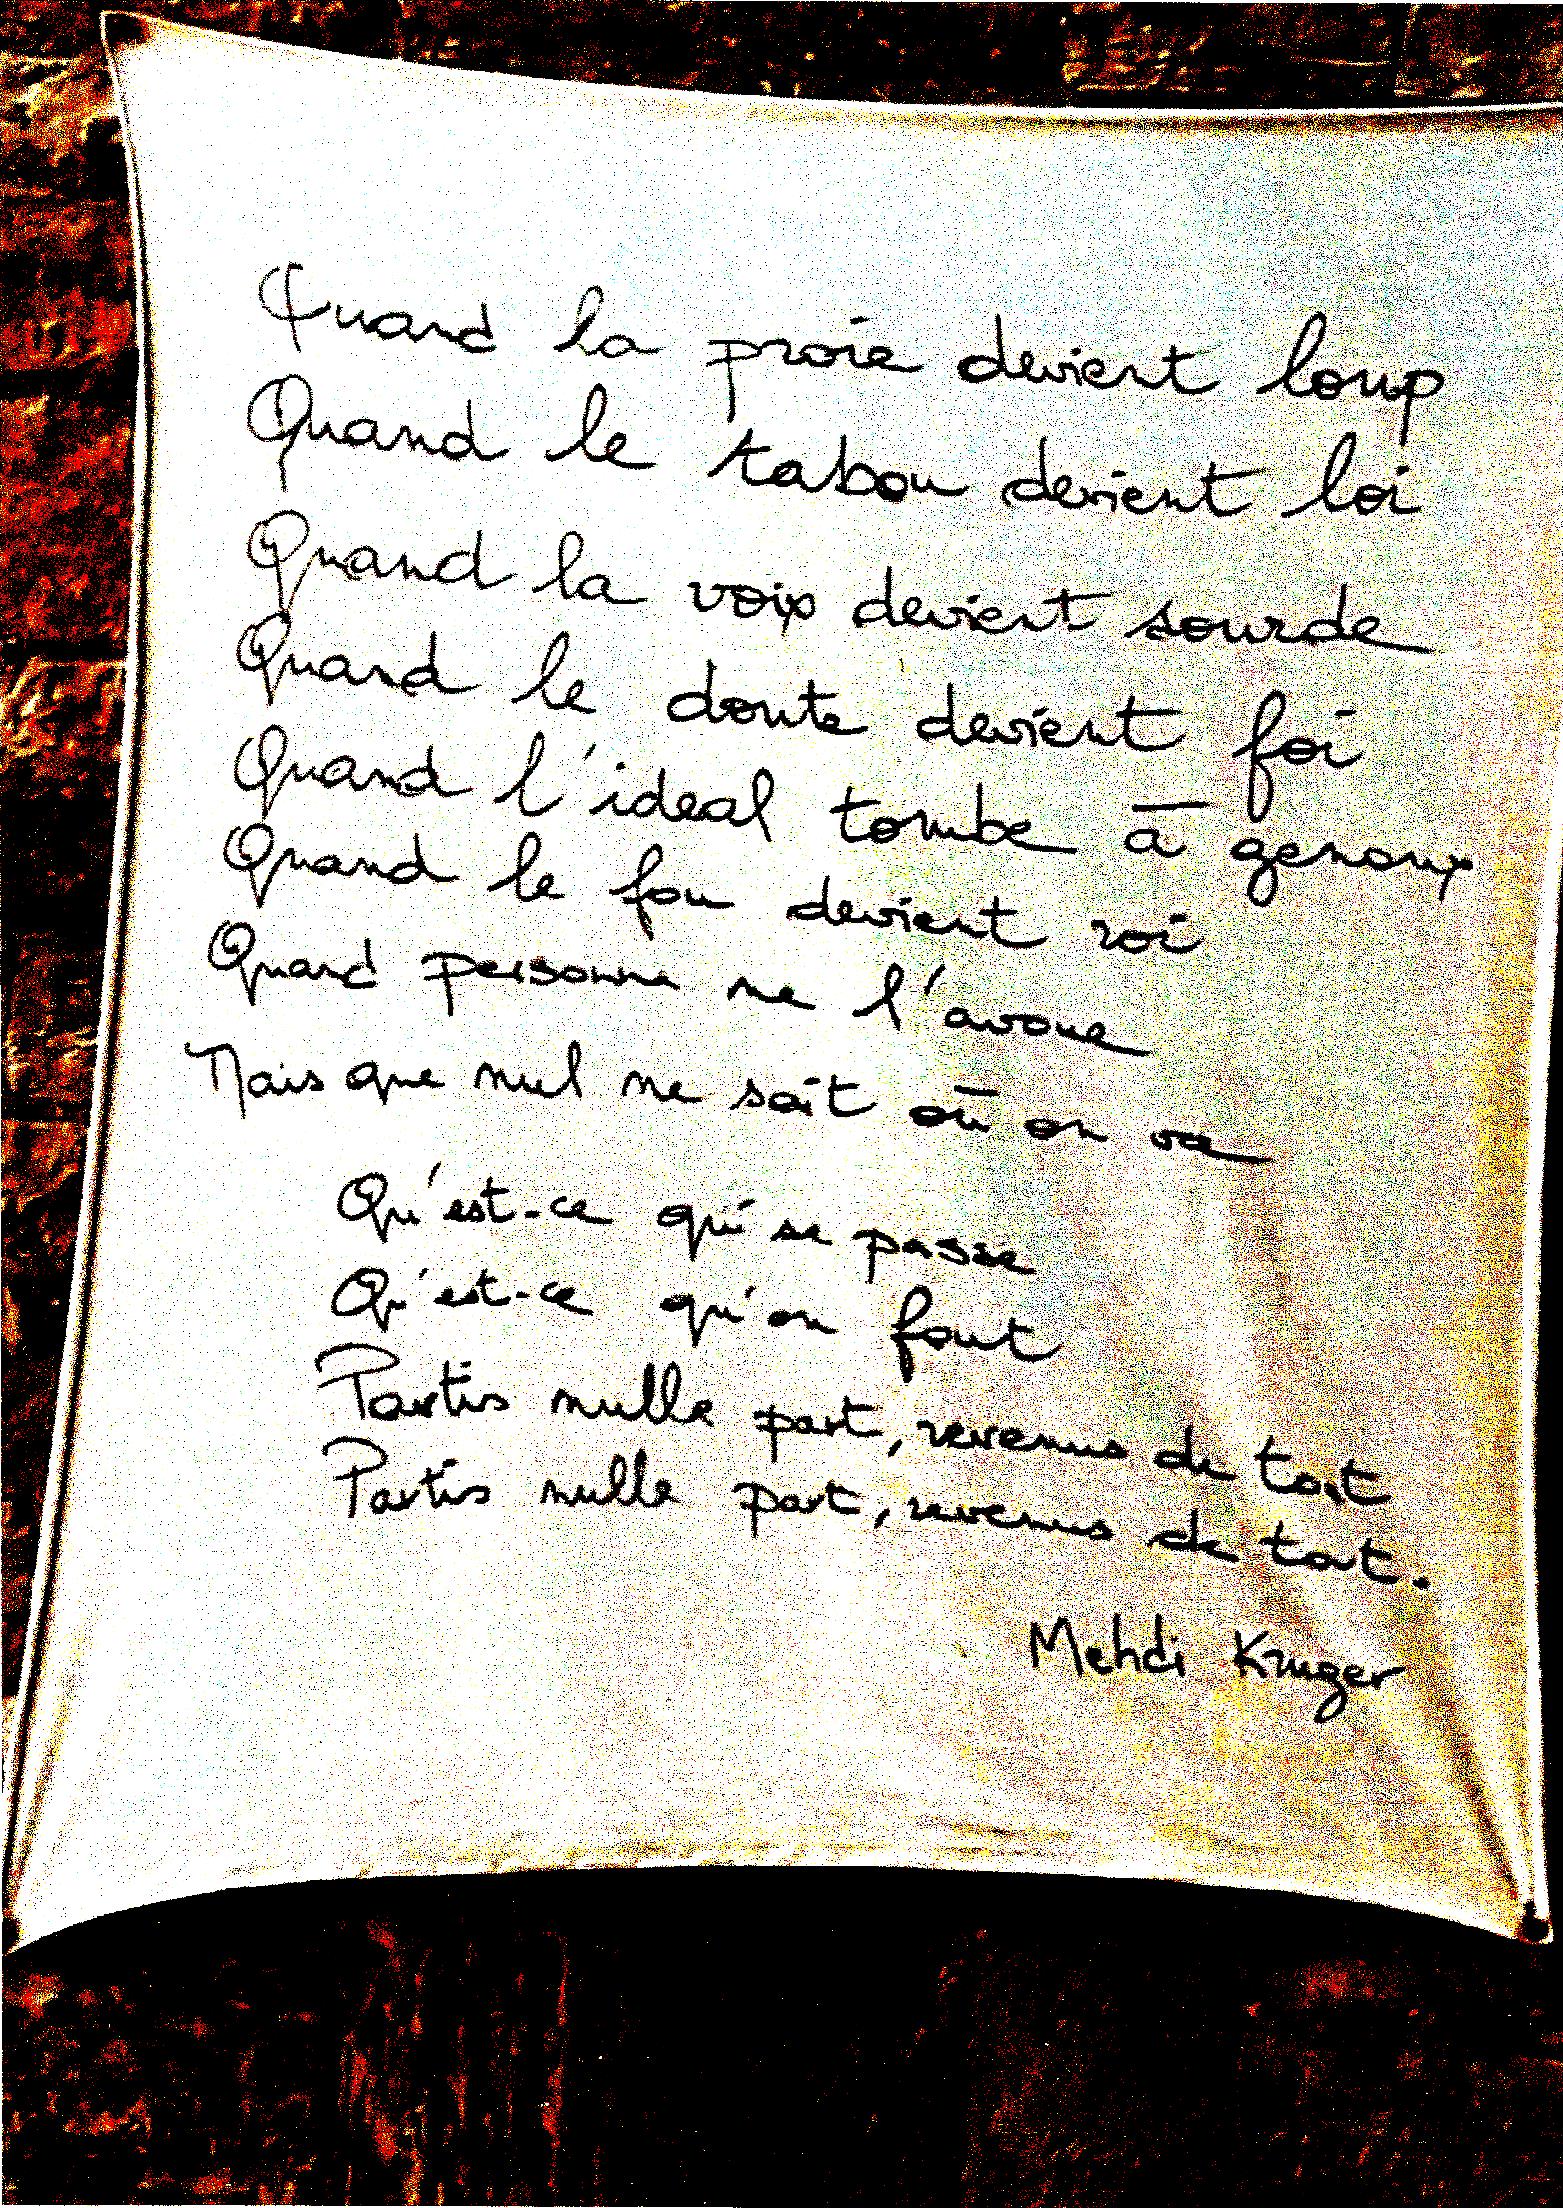 Quand la proie devient loup
Quand le tabou devient loi
Quand la voix devient sourde
Quand le doute devient foi
Quand l'ideal tombe à genoux
Quand le fou devient roi
Quand personne ne l'avoue
Mais que nul ne sait où on va
Qu'est-ce qui se passe
Qu'est-ce qu'on fout
Partis nulle part, revenus de tout
Partis nulle part, revenus de tout.
Mehdi Kruger